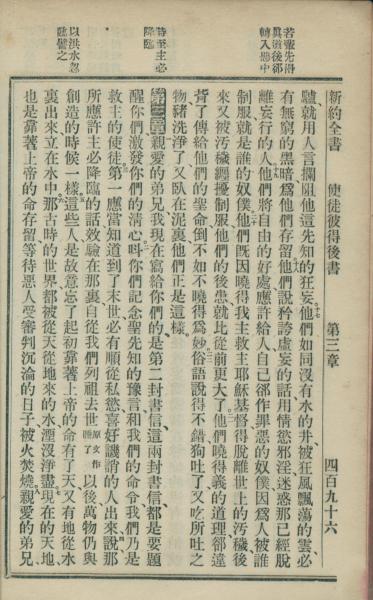 新約全書　使徒彼得後書　第三章　四百九十六
若輩先得
眞道後卻
轉入惡中
時至主必
降臨
以洪水忽
臨譬之
驢就用人言攔阻他這先知的狂妄他們如同沒有水的井被狂風飄蕩的雲必
有無窮的黑暗爲他們存留他們說矜誇虛妄的話用情慾邪淫迷惑那已經脫
離妄行的人他們將自由的好處應許給人自己卻作罪惡的奴僕因爲人被誰
制服就是誰的奴僕他們旣因曉得我主救主耶穌基督得脫離世上的汚穢後
來又被汚穢纒擾制服他們的後患就比從前更大了他們曉得義的道理卻違
背了傳給他們的聖命倒不如不曉得爲妙俗語說得不錯狗吐了又吃所吐之
物豬洗淨了又臥在泥裏他們正是這樣
第三章親愛的弟兄我現在寫給你們的是第二封書信這兩封書信都是要題
醒你們激發你們的淸心呌你們記念聖先知的豫言和我們的命令我們乃是
救主的使徒第一應當知道到了末世必有順從私慾喜好譏誚的人出來說那
所應許主必降臨的話效驗在那裏自從我們列祖去世原文作睡了以後萬物仍與
創造的時候一樣這些人是故意忘了起初靠著上帝的命有了天又有地從水
裏出來立在水中那古時的世界都被從天從地來的水湮沒淨盡現在的天地
也是靠著上帝的命存留等待惡人受審判沉淪的日子被火焚燒親愛的弟兄